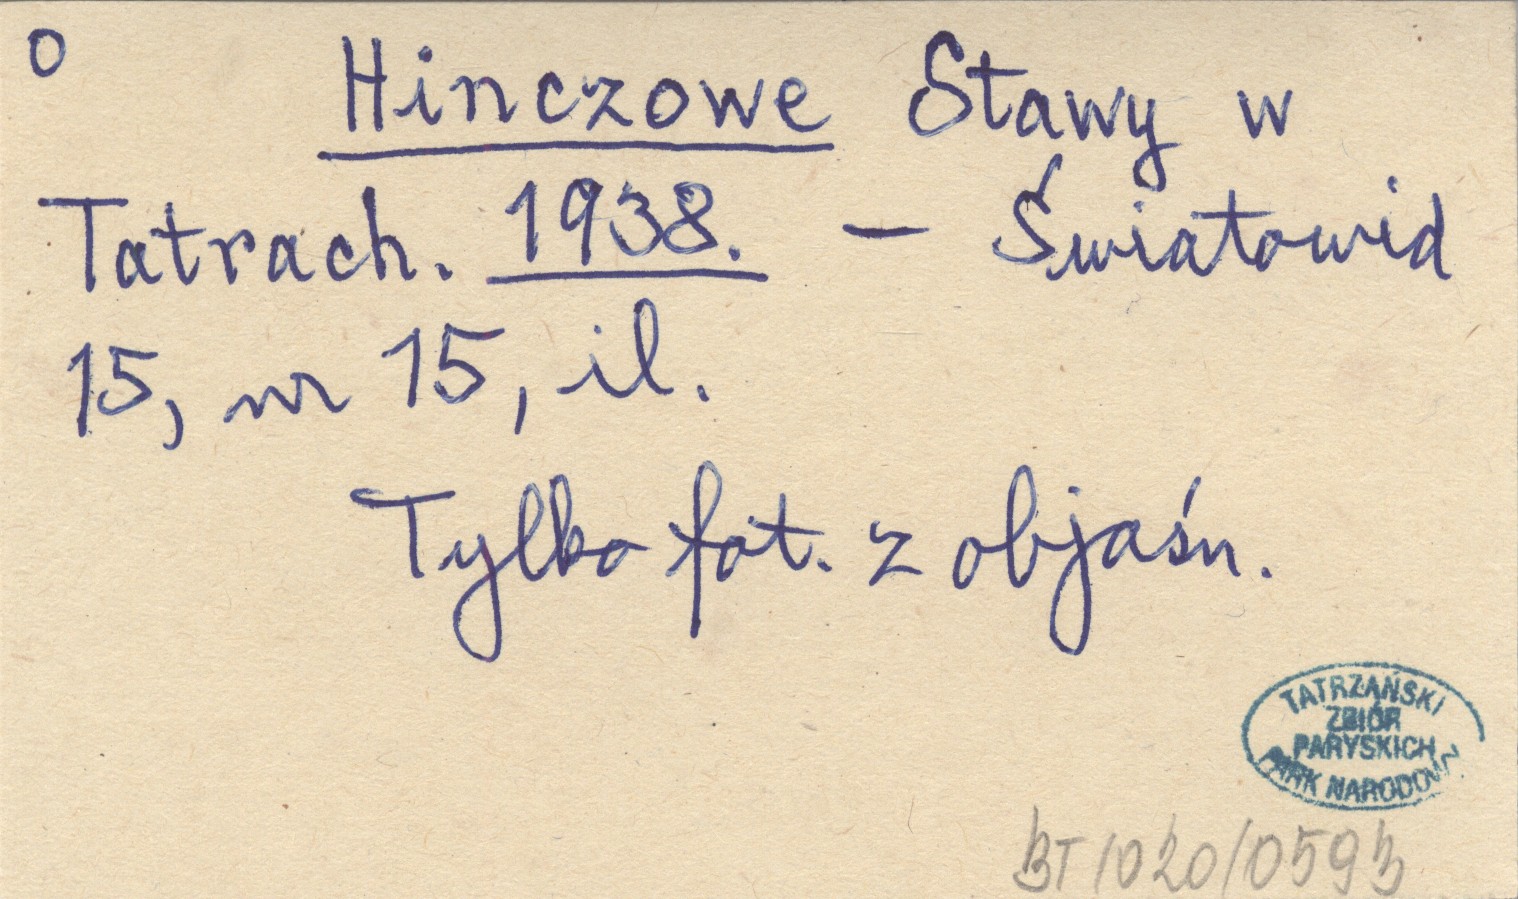 o Hinczowe Stawy w
Tatrach. 1938. — Światowid
15, nr 15, il.
Tylko fot. z objaśn.
TATRZAŃSKI
ZBIÓR
PARYSKICH
PARK NARODOWY
BT/020/0593